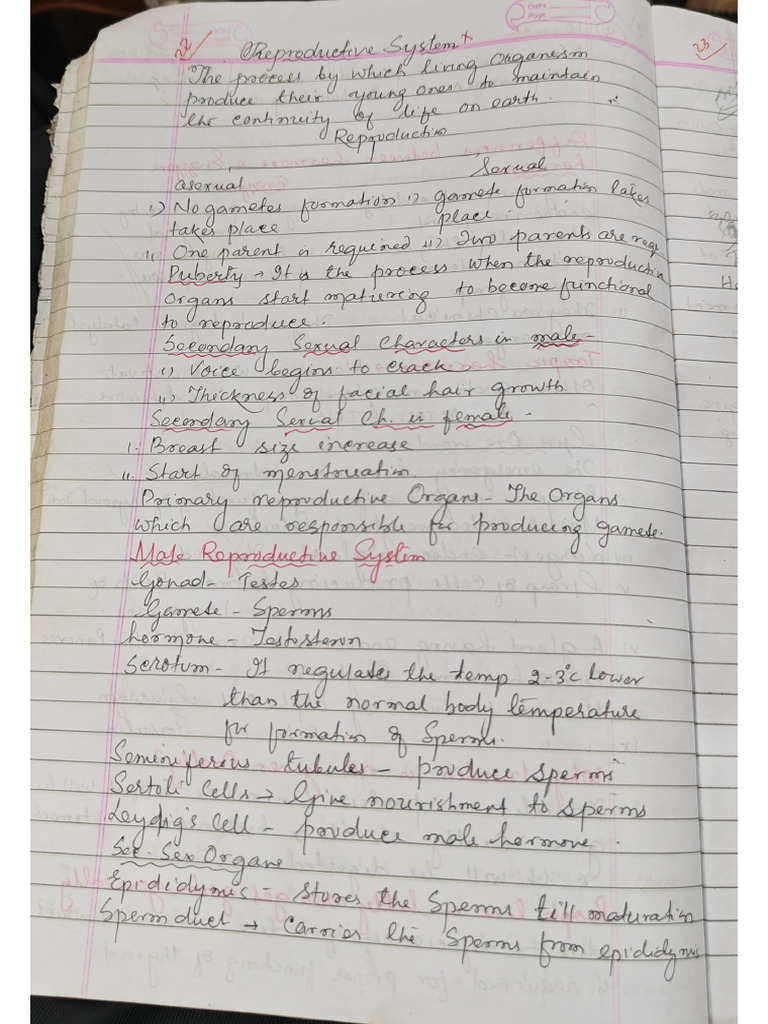 Date
Page
22 Reproductive System 23
The process by which living Organeism
produce their young ones to maintain
the continuity of life on earth.
Reproduction
asexual Sexual
i) No gametes formation i) gamete formation takes
takes place place.
ii One parent is required ii) Two parents are requ
Puberty → It is the process when the reproductive
Organs start maturing to become functional
to reproduce.
Secondary Sexual Characters in male -
i) Voice begins to crack
ii) Thickness of facial hair growth
Secondary Sexual Ch. in female.
i. Breast size increase
ii. Start of menstruation.
Primary reproductive Organs - The Organs
which are responsible for producing gamete.
Male Reproductive System
Gonad - Testes
Gamete - Sperms
hormone - Testosteron
Scrotum - It regulates the temp 2-3°c lower
than the normal body temperature
for formation of Sperms.
Seminiferous tubules - produce sperms
Sertoli Cells → Give nourishment to sperms
Leydig's Cell - produce male hormone.
Sec. Sex Organs
Epididymis - Stores the Sperms till maturation
Sperm duct → Carries the Sperms from epididymis